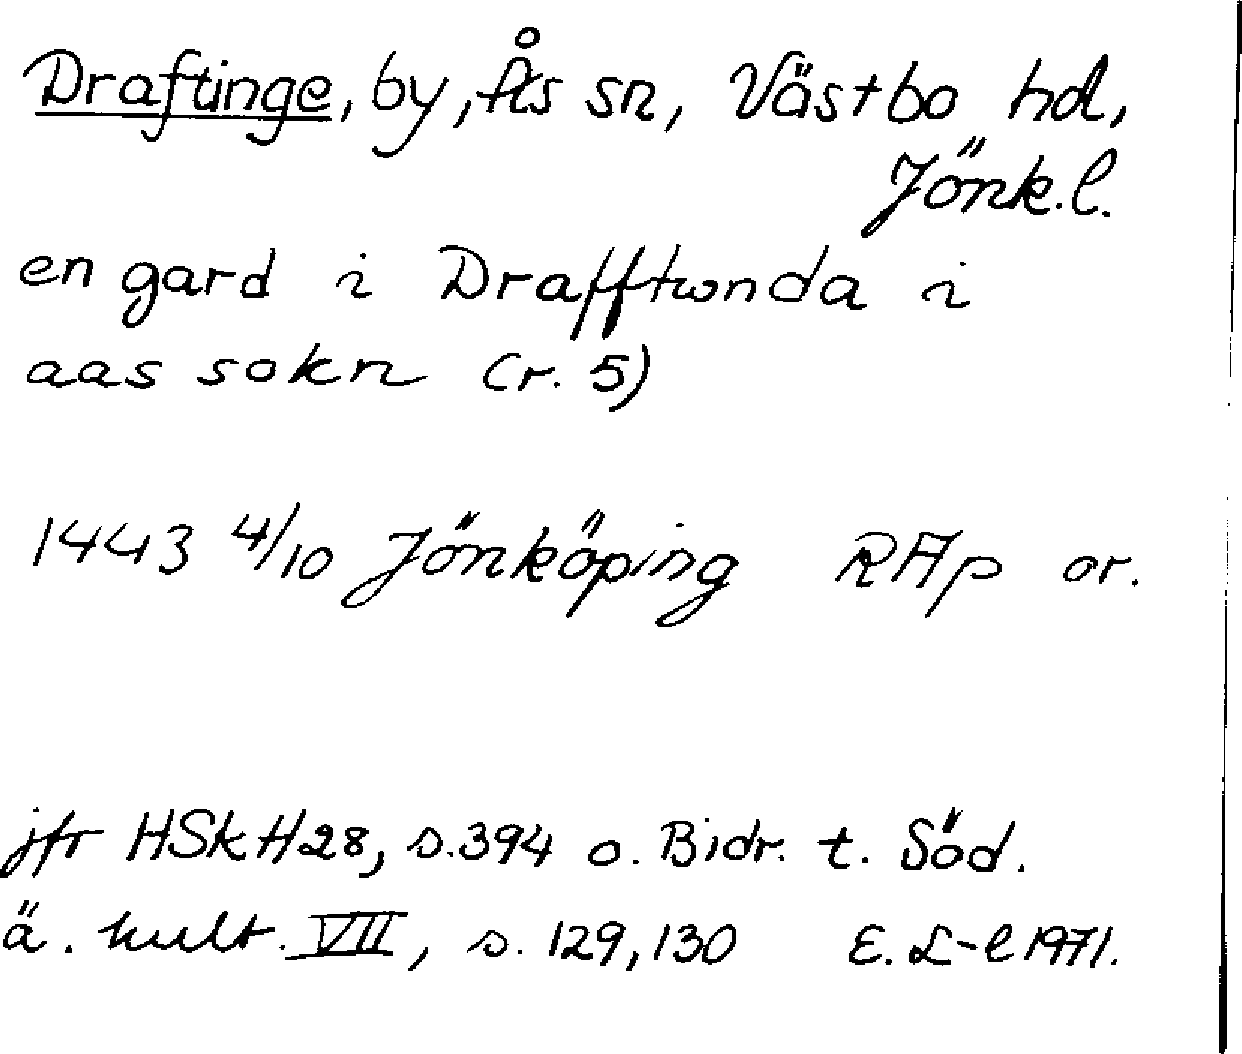 Draftinge, by, Ås sn, Västbo hd,
Jönk.l.
en gard i Drafftwnda i
aas sokn (r. 5)
1443 4/10 Jönköping RAp or.
jfr HSkH28, s.394 o. Bidr. t. Söd.
ä. kult. VII, s. 129, 130 E. L-l 1971.